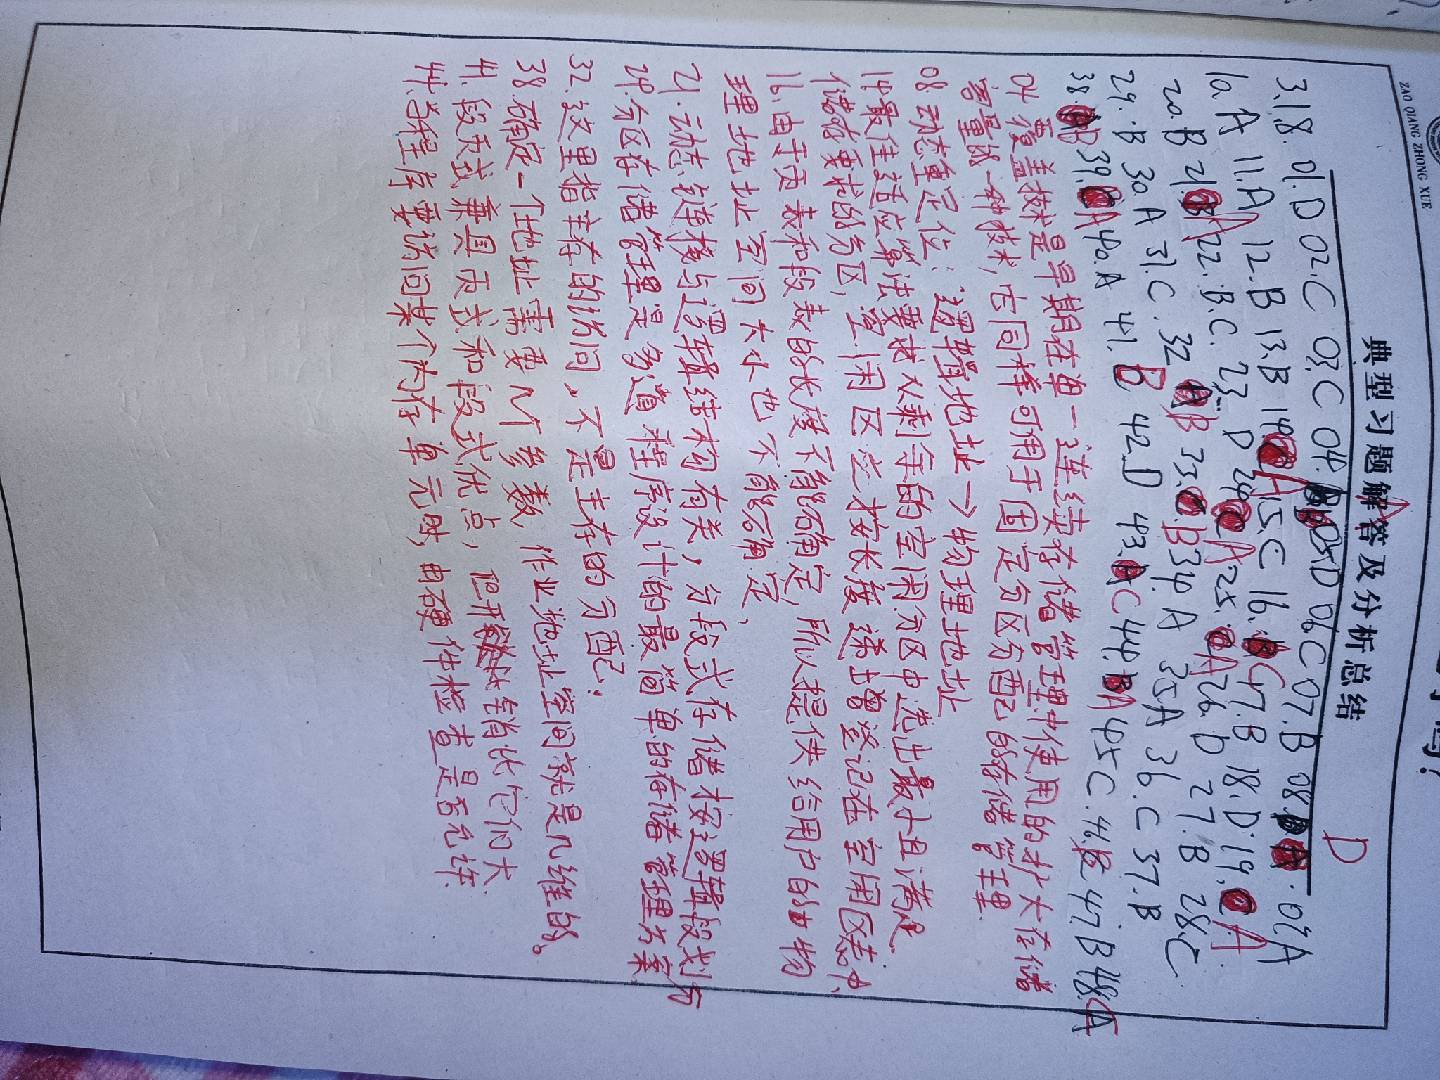 ZAO QIANG ZHONG XUE
吗?
典型习题解答及分析总结
A D
3.1.8. 01.D 02.C 03.C 04. B 05.D 06.C 07.B 08. A. 09.A
10.A 11.A 12.B 13.B 14. A 15.C 16. C 17.B 18.D 19. A
20.B 21. A 22.B.C. 23. D 24. A 25. A 26.D 27.B 28.C
29.B 30.A 31.C. 32 B 33. B 34.A 35A 36.C 37.B.
38. B 39. A 40.A 41. B 42.D 43. C 44. A 45C. 46. 47.B 48. A
04 覆盖技术是早期在单一连续存储管理中使用的扩大存储
容量的一种技术,它同样可用于固定分区分配的存储管理.
08 动态重定位:逻辑地址→物理地址
14最佳适应算法要求从剩余的空闲分区中选出最小且满足
储存要求的分区,空闲区应按长度递增登记在空闲区表中.
16.由于页表和段表的长度不能确定,所以提供给用户的物
理地址空间大小也不能确定.
21.动态链接与逻辑结构有关,分段式存储按逻辑段划分
24.分区存储管理是多道程序设计的最简单的存储管理方案
32.这里指主存的访问,不是主存的分配.
38.确定一个地址需要几个参数,作业地址空间就是几维的。
41.段页式兼具页式和段式优点,但开销比它们大.
44.当程序要访问某个内存单元时,由硬件检查是否允许.